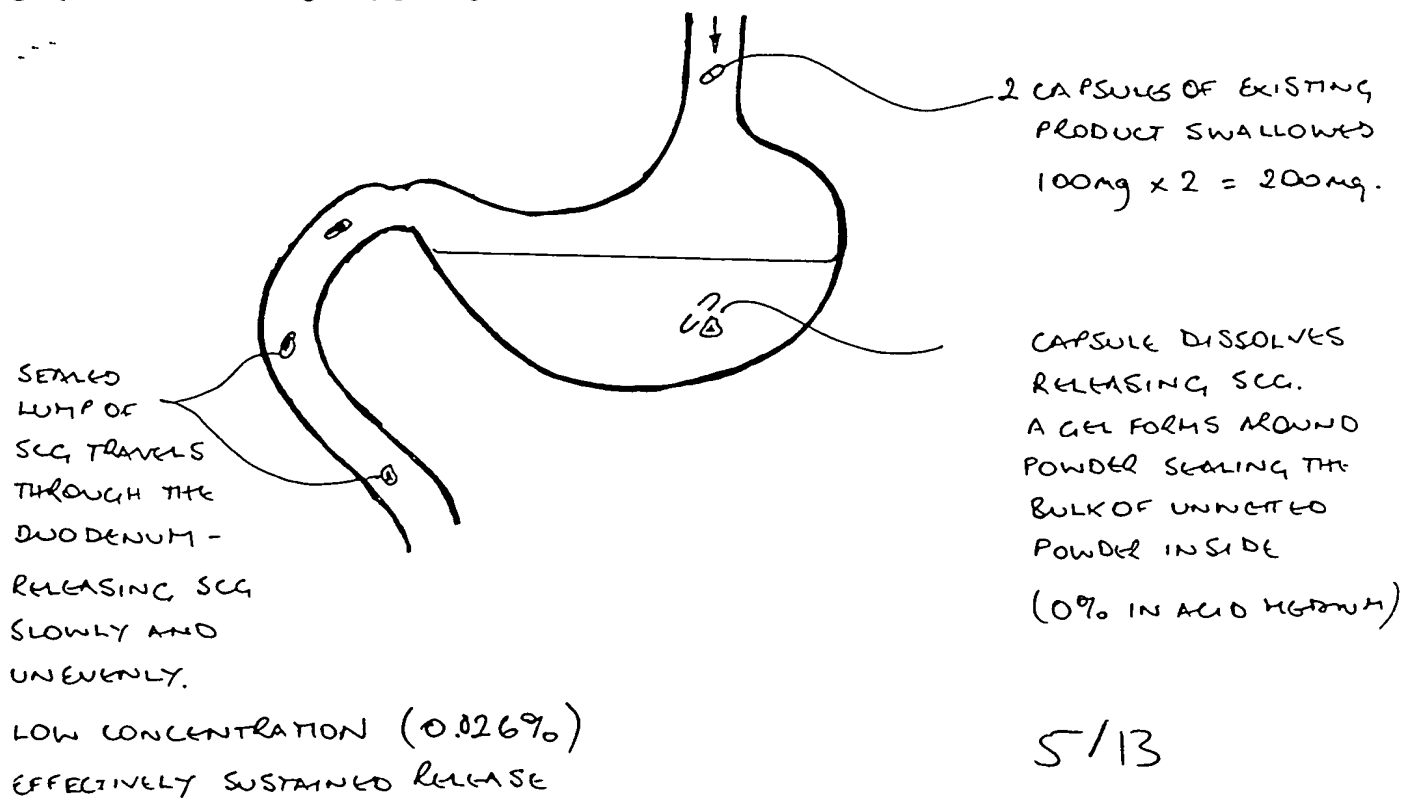 2 CAPSULES OF EXISTING
PRODUCT SWALLOWED
100mg x 2 = 200mg.
CAPSULE DISSOLVES
RELEASING SCG.
A GEL FORMS AROUND
POWDER SEALING THE
BULK OF UNWETTED
POWDER INSIDE
(0% IN ACID MEDIUM)
SEALED
LUMP OF
SCG TRAVELS
THROUGH THE
DUODENUM -
RELEASING SCG
SLOWLY AND
UNEVENLY.
LOW CONCENTRATION (0.026%)
EFFECTIVELY SUSTAINED RELEASE
5/13